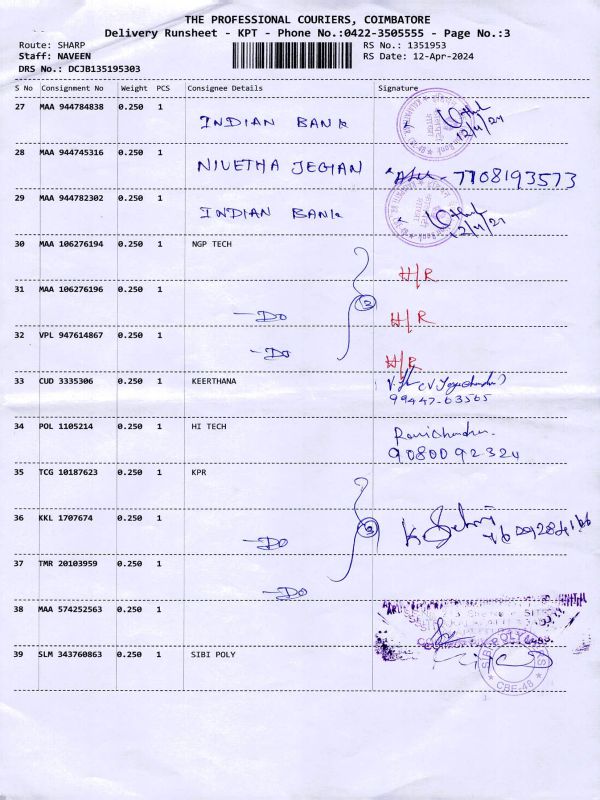 THE PROFESSIONAL COURIERS, COIMBATORE
Delivery Runsheet - KPT - Phone No.:0422-3505555 - Page No.:3
Route: SHARP RS No.: 1351953
Staff: NAVEEN RS Date: 12-Apr-2024
DRS No.: DCJB135195303
S No Consignment No Weight PCS Consignee Details Signature
27 MAA 944784838 0.250 1 INDIAN BANK 12/4/24
28 MAA 944745316 0.250 1 NIVETHA JEGIAN 7708193573
29 MAA 944782302 0.250 1 INDIAN BANK 12/4/24
30 MAA 106276194 0.250 1 NGP TECH H/R
31 MAA 106276196 0.250 1 -DO 3 H/R
32 VPL 947614867 0.250 1 -DO H/R
33 CUD 3335306 0.250 1 KEERTHANA
99447-63565
34 POL 1105214 0.250 1 HI TECH Ravichandran
9080092324
35 TCG 10187623 0.250 1 KPR
36 KKL 1707674 0.250 1 -DO 3
37 TMR 20103959 0.250 1 -DO
38 MAA 574252563 0.250 1
39 SLM 343760863 0.250 1 SIBI POLY
CBE-48